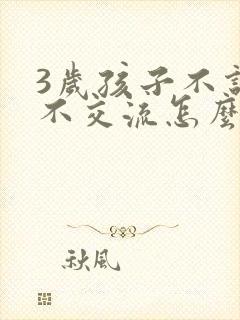 3歲孩子不
不交流怎麼
秋風